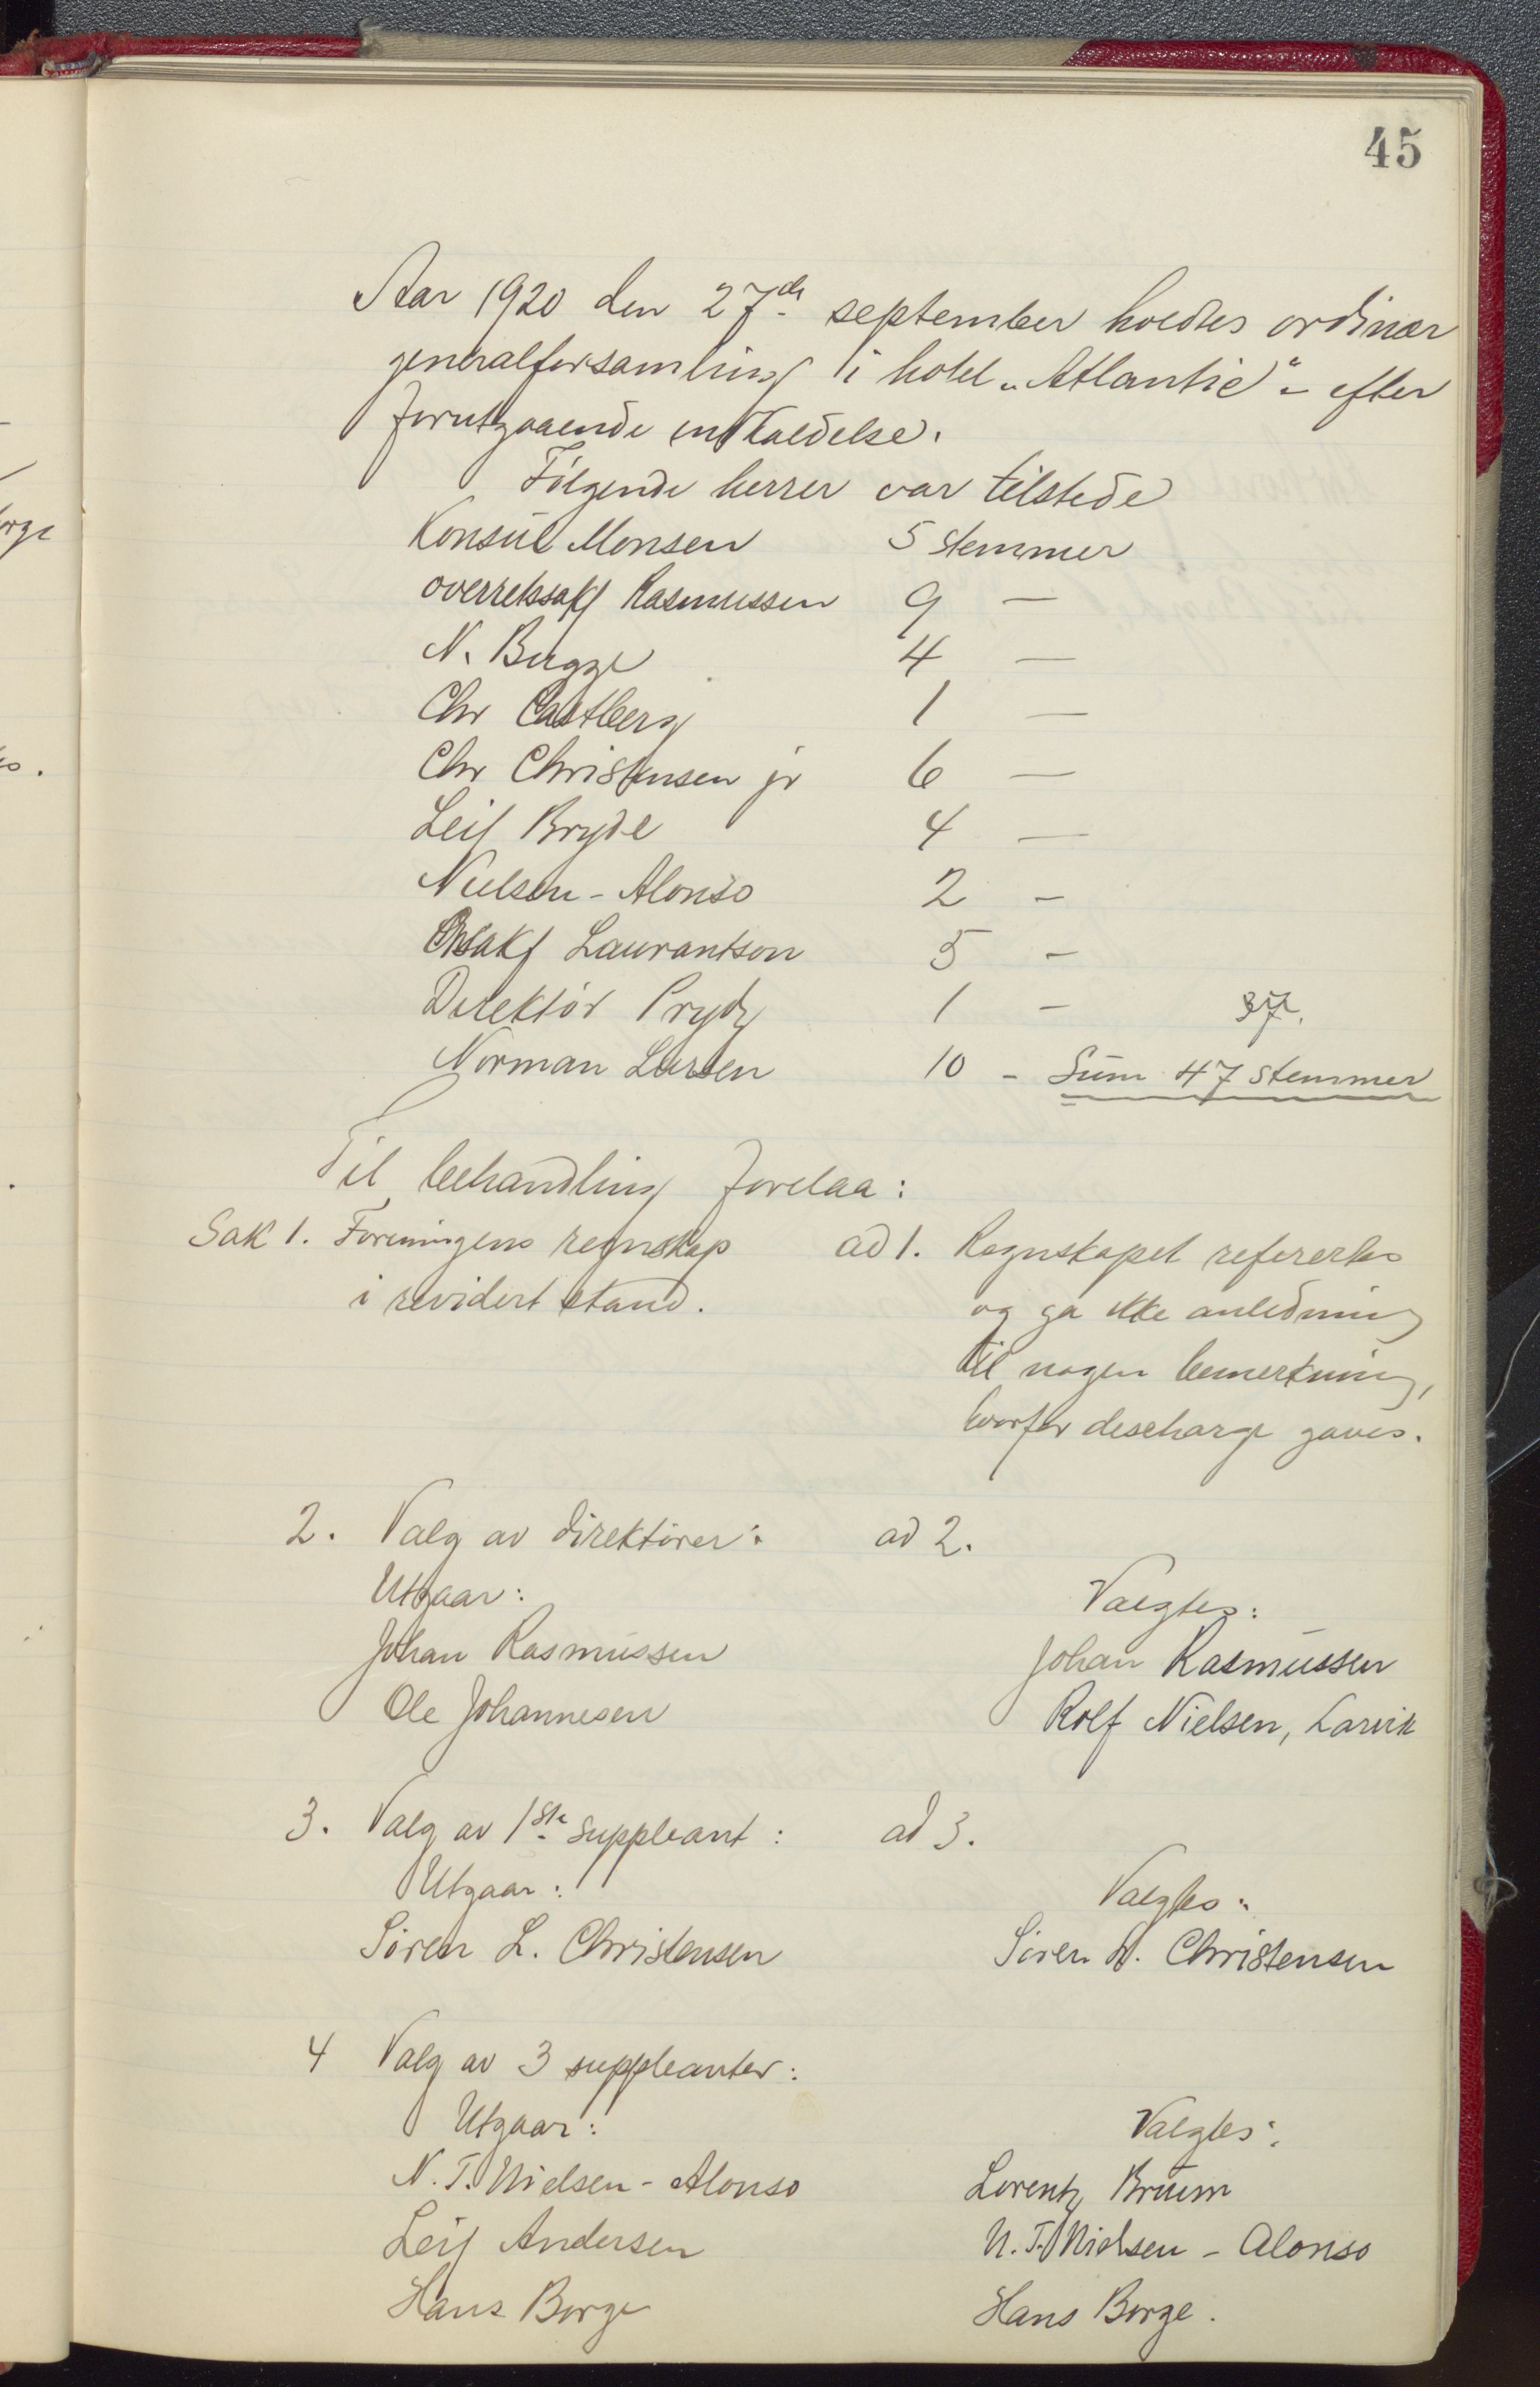 45
Aar 1920 den 27de september holdtes ordinær
generalforsamling i hotel "Atlantic" - efter
forutgaaende indkaldelse.
Følgende herrer var tilstede
Konsul Monsen 5 stemmer
overretssakf Rasmussen 9 —
N. Bugge 4 —
Chr Castberg 1 —
Chr Christensen jr 6 —
Leif Bryde 4 —
Nielsen-Alonso 2 -
Orsakf Laurantson 5 -
Direktør Prydz 1 - 37.
Norman Larsen 10 - Sum 47 stemmer
Til behandling forelaa:
Sak 1. Foreningens regnskap
i revidert stand.
ad 1. Regnskapet referertes
og ga ikke anledning
til nogen bemerkning,
hvorfor descharge gaves.
2. Valg av direktører:
Utgaar:
Johan Rasmussen
Ole Johannesen
ad 2.
Valgtes:
Johan Rasmussen
Rolf Nielsen, Larvik
3. Valg av 1ste suppleant:
Utgaar:
Søren L. Christensen
ad 3.
Valgtes:
Søren L. Christensen
4 Valg av 3 suppleanter:
Utgaar:
N. T. Nielsen-Alonso
Leif Andersen
Hans Borge
Valgtes:
Lorentz Bruun
N. T. Nielsen - Alonso
Hans Borge.